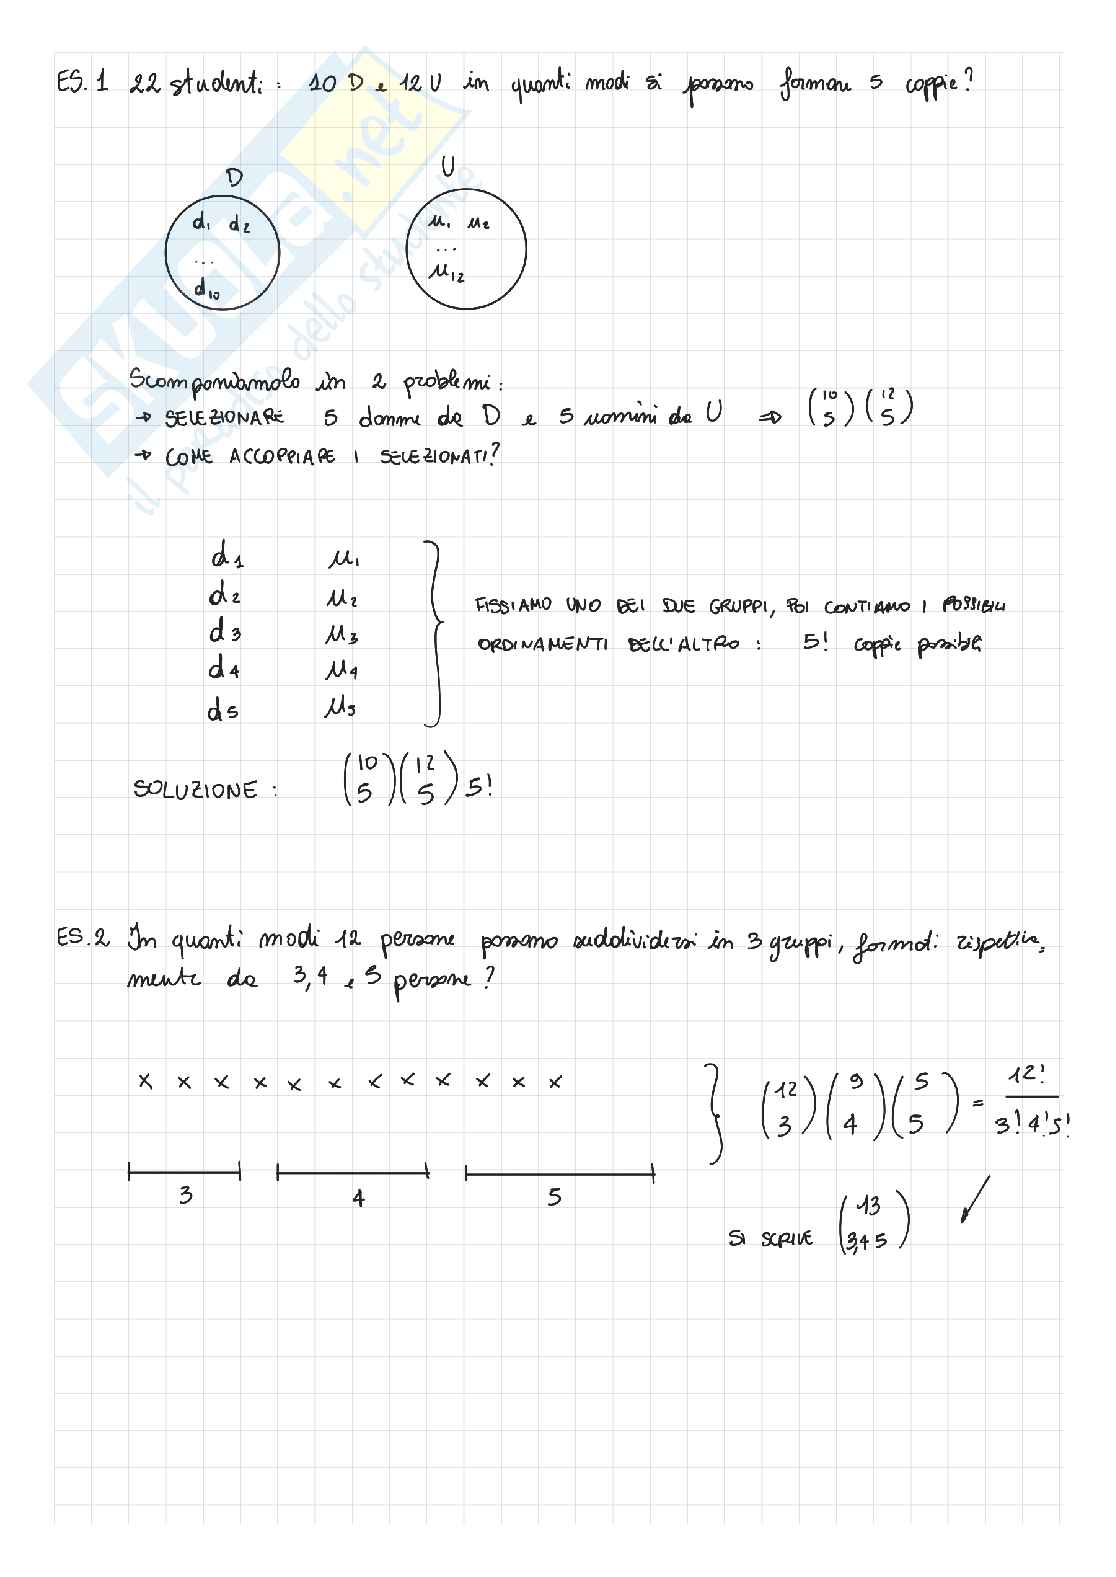 ES. 1 22 studenti: 10 D e 12 U in quanti modi si possono formare 5 coppie?
D U
d1 d2 u1 u2
... ...
d10 u12
Scomponiamolo in 2 problemi:
→ SELEZIONARE 5 donne da D e 5 uomini da U ⇒ (10 5)(12 5)
→ COME ACCOPPIARE I SELEZIONATI?
d1 u1
d2 u2
d3 u3
d4 u4
d5 u5
FISSIAMO UNO DEI DUE GRUPPI, POI CONTIAMO I POSSIBILI
ORDINAMENTI DELL'ALTRO: 5! coppie possibili
SOLUZIONE: (10 5)(12 5) 5!
ES. 2 In quanti modi 12 persone possono suddividersi in 3 gruppi, formati rispettiva-
mente da 3, 4 e 5 persone?
x x x x x x x x x x x x
3 4 5
(12 3)(9 4)(5 5) = 12! / 3! 4! 5!
SI SCRIVE (13 3,4 5) ✓
SKUOLA.net
il paradiso dello studente